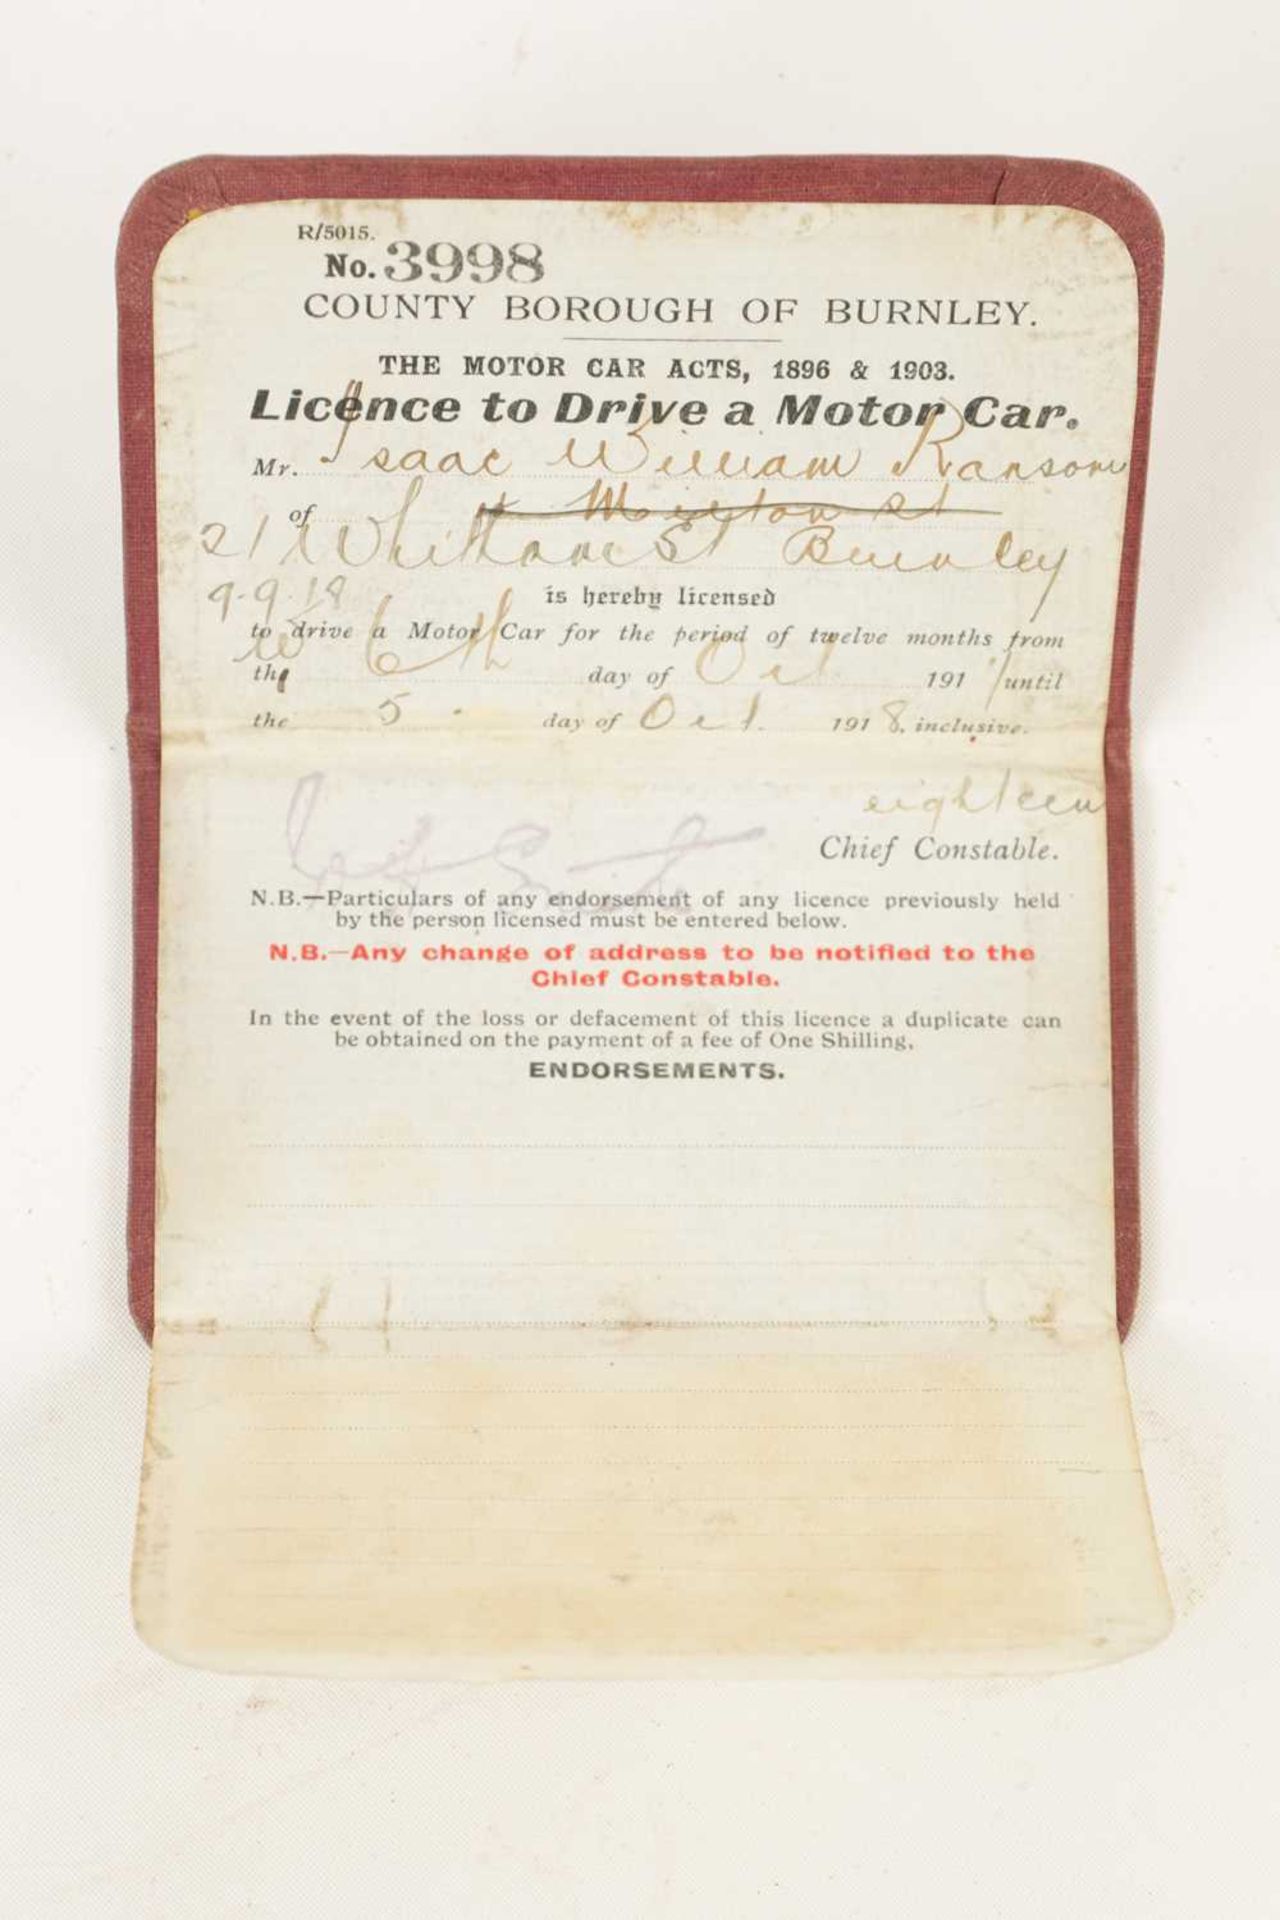 R/5015.
No. 3998
COUNTY BOROUGH OF BURNLEY.
THE MOTOR CAR ACTS, 1896 & 1903.
Licence to Drive a Motor Car.
Mr. Isaac William Ransom
of
21 St Burnley
9.9.18 is hereby licensed
to drive a Motor Car for the period of twelve months from
the 6th day of Oct 191 7 until
the 5 day of Oct. 191 8. inclusive.
eighteen
Chief Constable.
N.B.—Particulars of any endorsement of any licence previously held
by the person licensed must be entered below.
N.B.—Any change of address to be notified to the
Chief Constable.
In the event of the loss or defacement of this licence a duplicate can
be obtained on the payment of a fee of One Shilling.
ENDORSEMENTS.